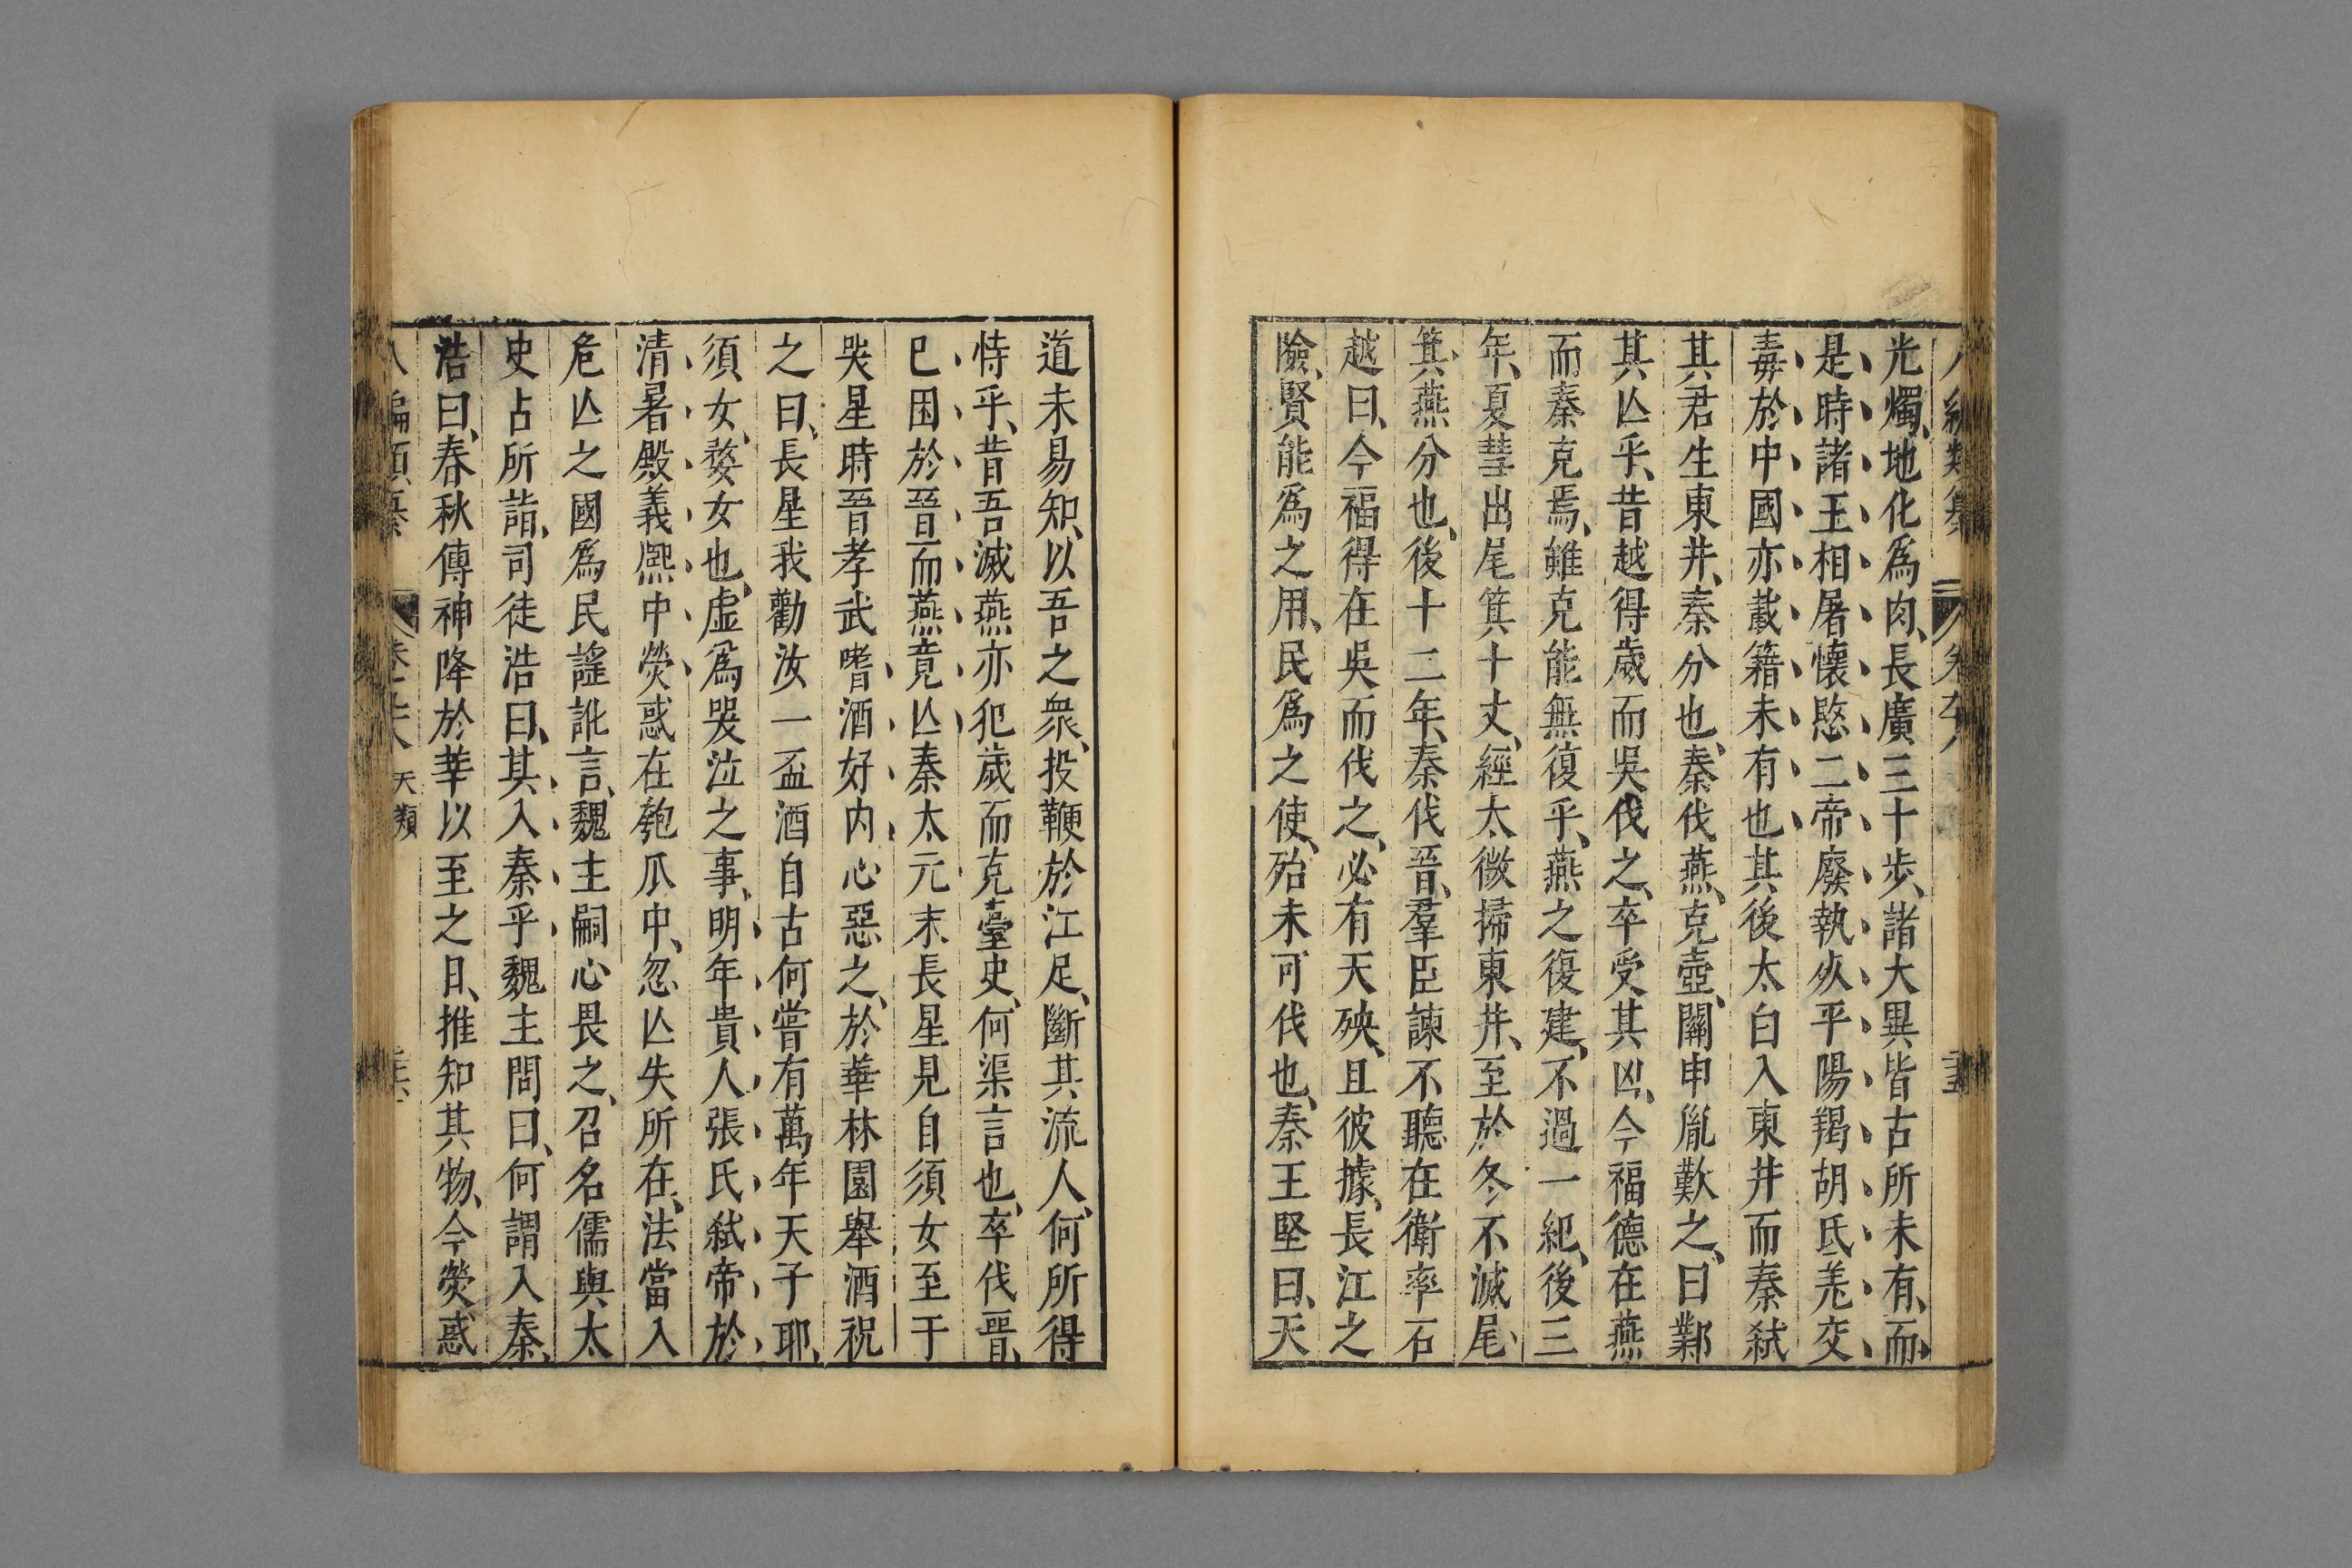 光燭、地化爲肉、長廣三十步、諸大異皆古所未有、而
是時諸王相屠懷愍二帝廢執𣦸平陽羯胡氐羌交
毒於中國亦載籍未有也其後太白入東井而秦弑
其君生東井、秦分也、秦伐燕、克壺、關申胤歎之、曰鄴
其亾乎、昔越得歲而吳伐之、卒受其凶、今福德在燕
而秦克焉、雖克能無復乎、燕之復建、不過一紀、後三
年、夏彗出尾箕十丈、經太微掃東井、至於冬不滅尾
箕、燕分也、後十二年、秦伐晉、羣臣諫不聽在衛率石
越曰、今福得在吳而伐之、必有天殃、且彼據、長江之
險、賢能爲之用、民爲之使、殆未可伐也、秦王堅曰、天
道未易知、以吾之衆、投鞭於江足、斷其流人、何所得
恃乎、昔吾滅燕亦犯歲而克臺史、何渠言也、卒伐晉、
已困於晉而燕竟亾秦太元末長星見自須女至于
哭星時晉孝武嗜酒好內心惡之、於華林園舉酒祝
之曰、長星我勸汝一盃酒自古何嘗有萬年天子耶、
須女、婺女也、虛爲哭泣之事、明年貴人張氏弑帝於
清暑殿義熙中熒惑在匏瓜中、忽亾失所在、法當入
危亾之國爲民謠訛言、魏主嗣心畏之、召名儒與太
史占所詣、司徒浩曰、其入秦乎魏主問曰、何謂入秦、
浩曰、春秋傳神降於莘以至之日、推知其物、今熒惑
天類